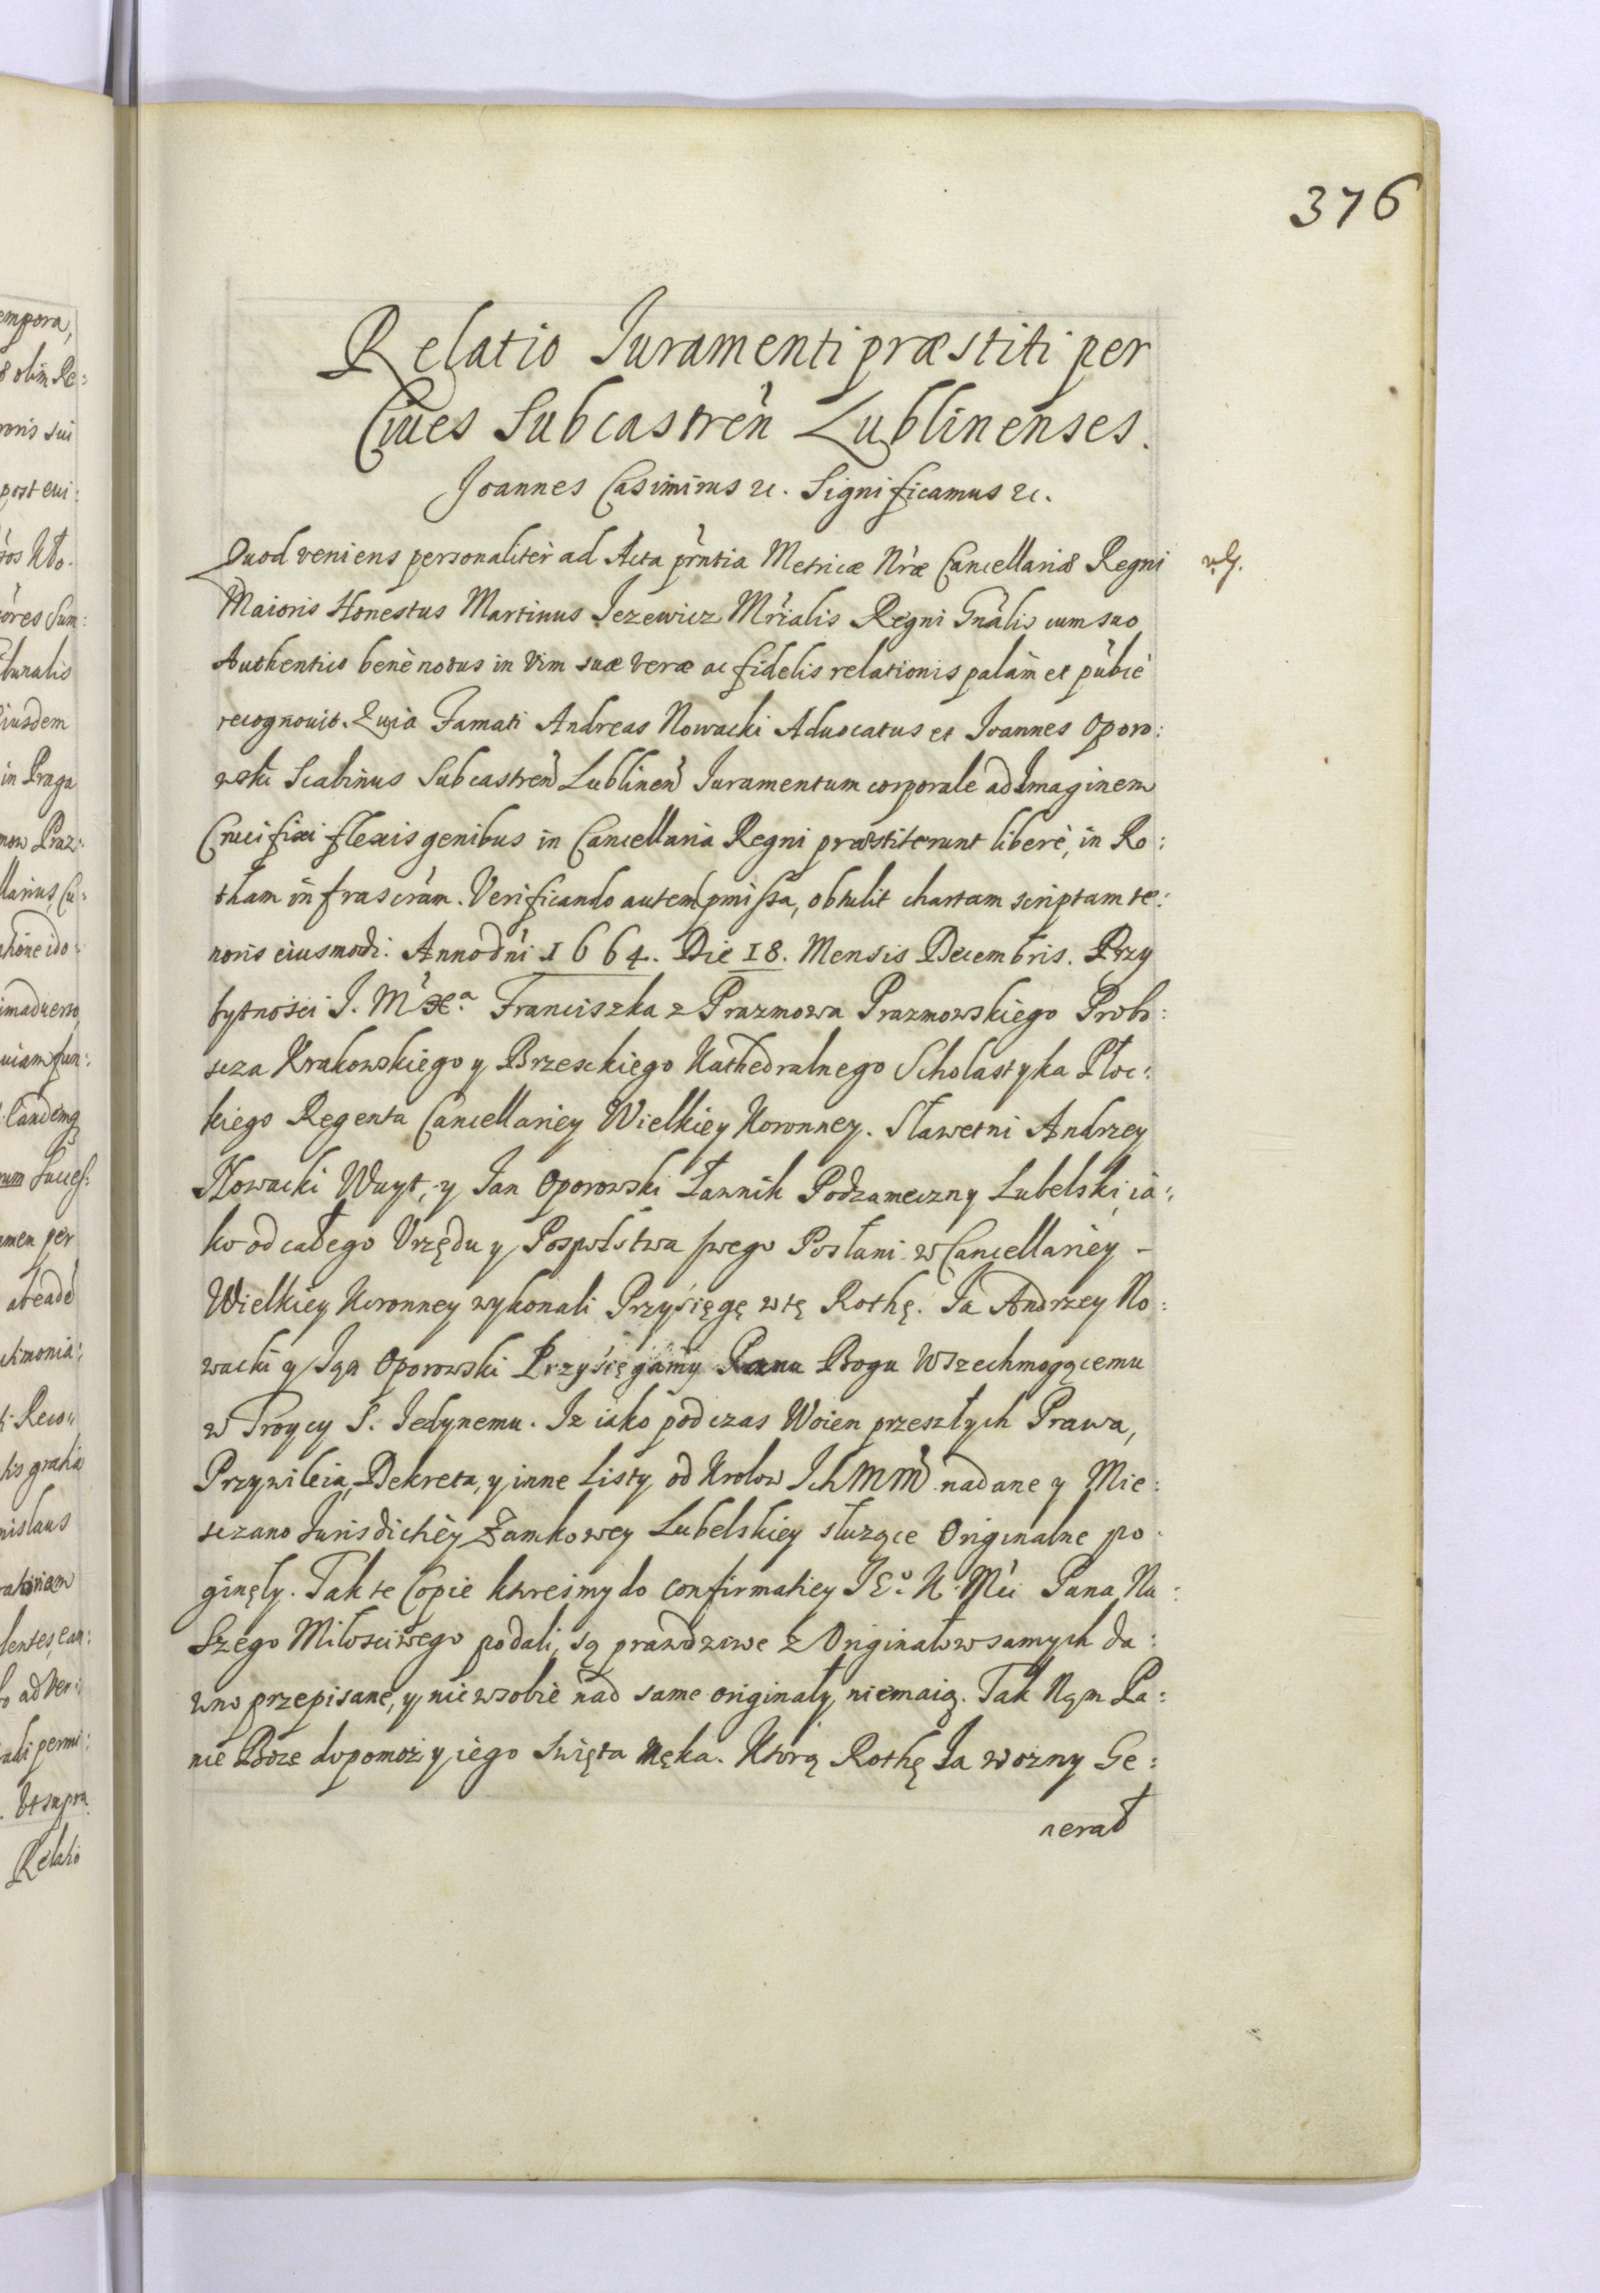 376
Relatio Juramenti præstiti per
Ciues Subcastren̄ Lublinenses.
Joannes Casimirus &c. Significamus &c.
Quod veniens personaliter ad Acta pr̃ntia Metricæ Nr̃æ Cancellariæ Regni
Maioris Honestus Martinus Jezewicz Mr̃ialis Regni Gnãlis cum suo
Authentico benè notus in vim suæ veræ ac fidelis relationis palàm et pùbcè
recognouit. Quia Famati Andreas Nowacki Aduocatus et Joannes Oporo:
wski Scabinus Subcastren̄ Lublinen̄ Juramentum corporale ad Imaginem
Crucifixi flexis genibus in Cancellaria Regni præstiterunt liberè, in Ro:
tham infrascrãm. Verificando autem pmissa, obtulit chartam scriptam te:
noris eiusmodi. Anno dni 1664. Die 18. Mensis Decembris. Przy
bytności J. M Xa Franciszka z Prazmowa Prazmowskiego Probo:
scza Krakowskiego y Brzeskiego Kathedralnego Scholastyka Płoc:
kiego Regenta Cancellariey Wielkiey Koronney. Sławetni Andrzey
Nowacki Wuyt, y Jan Oporowski Ławnik Podzameczny Lubelski, ia:
ko od całego Vrzędu y Pospolstwa swego Posłani w Cancellariey -
Wielkiey Koronney wykonali Przysięgę w tę Rothę. Ja Andrzey No:
wacki y Jan Oporowski Przysięgamy Panu Bogu Wszechmogącemu
w Troycy S. Jedynemu. Iz iako podczas Woien przeszłych Prawa,
Przywileia, Dekreta, y inne Listy od Krolow Ich MM nadane y Mie:
sczano Jurisdictiey Zamkowey Lubelskiey słuzące Originalne po
ginęły. Tak te Copie ktoreśmy do confirmatiey JEo K. Mci Pana Na:
szego Miłosciwego podali, są prawdziwe z Originałow samych da:
wno przepisane, y nic w sobie nad same originały niemaią. Tak Nam Pa:
nie Boze dopomoż y iego Swięta Męka. Ktorą Rothę Ja wozny Ge:
nerał